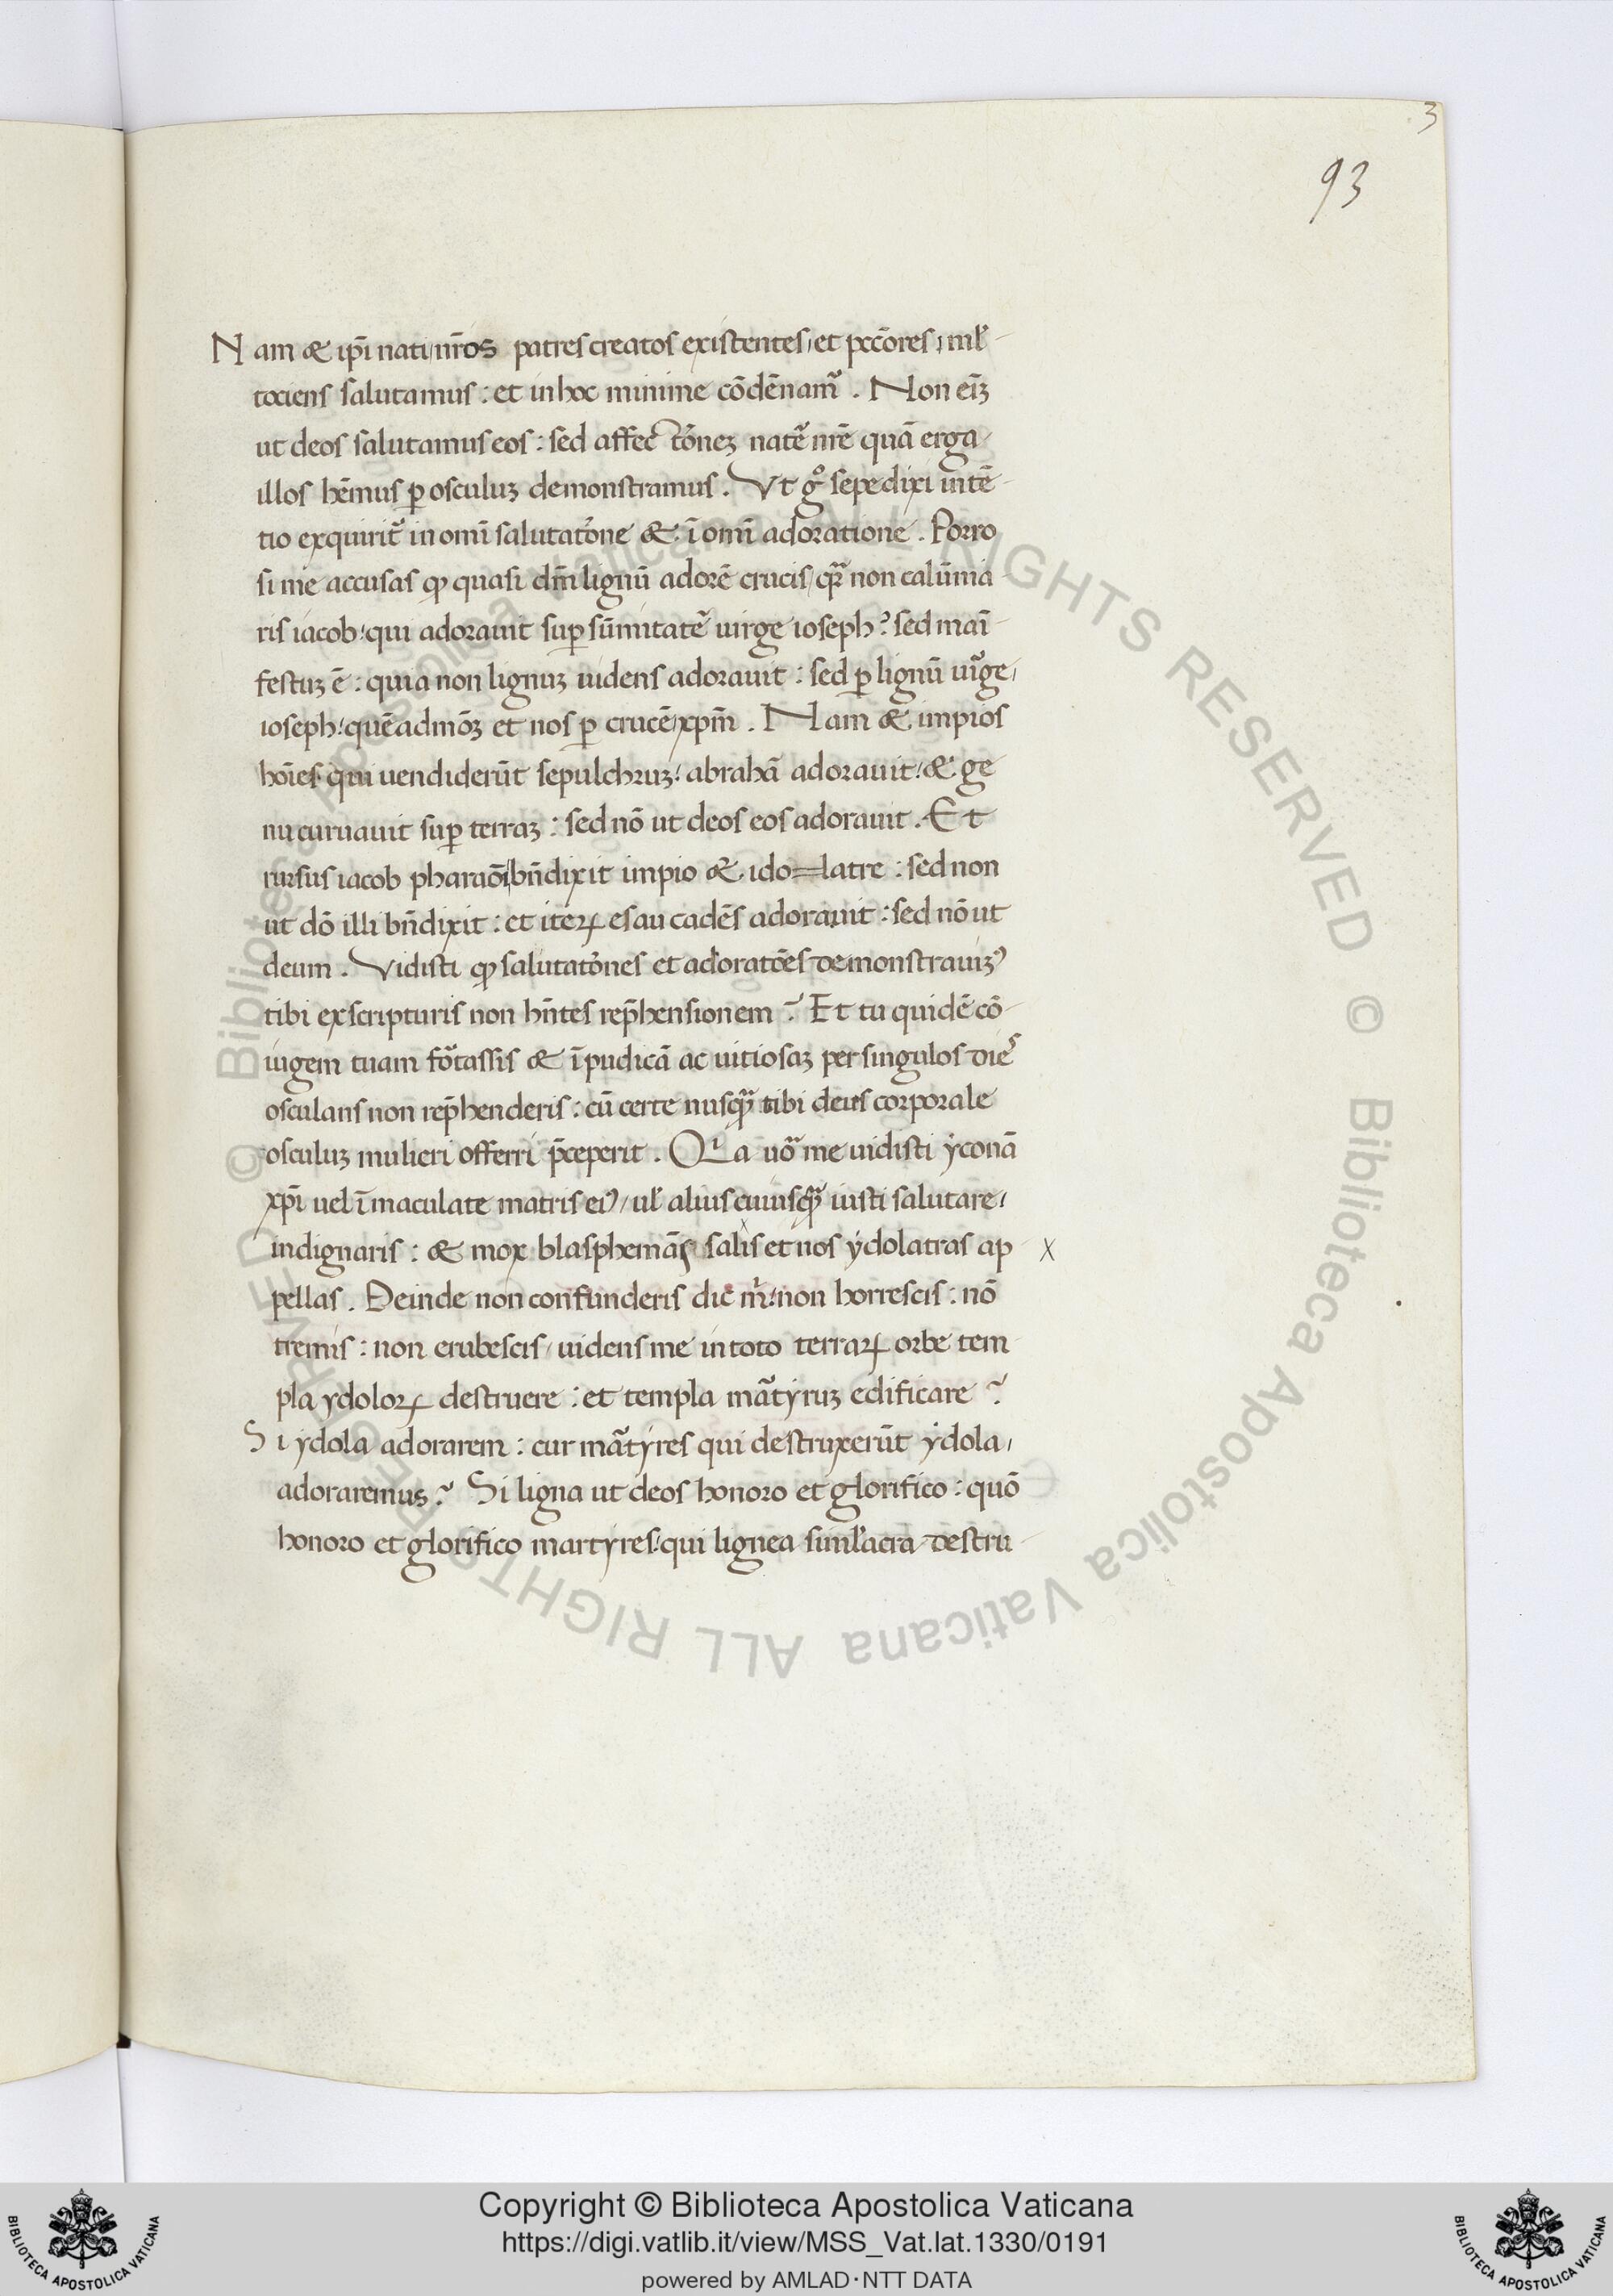 3
93
Nam & ip̄i nati nr̄os patres creatos existentes, et pcc̄ores, ml̓
tociens salutamus : et in hoc minime cōdēnam᷑ . Non eīꝫ
ut deos salutamus eos : sed affect̓oneꝫ natē nr̄e quā erga
illos hēmus ꝑ osculuꝫ demonstramus . Vt gͦ sepe dixi intē
tio exquirit᷑ in om̄i salutat̓one & ī om̄i adoratione . Porro
si me accusas ꝙ quasi dm̄ lignū adorē crucis, qr̄ non calūnia
ris iacob : qui adorauit suꝑ sūmitatē uirge ioseph ? sed maī
festuꝫ ē : quia non lignuꝫ uidens adorauit : sed ꝑ lignū uirge,
ioseph : quēadmōꝫ et nos ꝑ crucē, xp̄m . Nam & impios
hōies qui uendiderūt sepulchruꝫ : abrahā adorauit : & ge
nu curuauit suꝑ terraꝫ : sed nō ut deos eos adorauit . Et
rursus iacob pharaōi bn̄dixit impio & ido=latre : sed non
ut dō illi bn̄dixit : et iteꝝ esau cadēs adorauit : sed nō ut
deum . Vidisti ꝙ salutat̓ones et adoratōes demonstrauiꝫꝰ
tibi ex scripturis non hn̄tes rep̄hensionem ? Et tu quidē cō
iugem tuam fo᷑tassis & īpudicā ac uitiosaꝫ per singulos dies
osculans non rep̄henderis : cū certe nusqᷓ tibi deus corporale
osculuꝫ mulieri offerri p̄ceperit . Quia uo᷑ me uidisti ẏconā
xp̄i uel īmaculate matris eiꝰ, ul̓ alius cuiusqᷓ iusti salutare,
indignaris : & mox blasphemās salis et nos ẏdolatras ap x
pellas . Deinde non confunderis dic m̓ : non horrescis : nō
tremis : non erubescis, uidens me in toto terraꝝ orbe tem
pla ydoloꝝ destruere : et templa ma᷑tyruꝫ edificare ?
Si ydola adorarem : cur ma᷑tẏres qui destruxerūt ẏdola,
adoraremus ? Si ligna ut deos honoro et glorifico : quō
honoro et glorifico martẏres : qui lignea siml̓acra destru
Copyright © Biblioteca Apostolica Vaticana
https://digi.vatlib.it/view/MSS_Vat.lat.1330/0191
powered by AMLAD·NTT DATA
BIBLIOTECA APOSTOLICA VATICANA
BIBLIOTECA APOSTOLICA VATICANA
© Biblioteca Apostolica Vaticana ALL RIGHTS RESERVED © Biblioteca Apostolica Vaticana ALL RIGHTS RESERVED